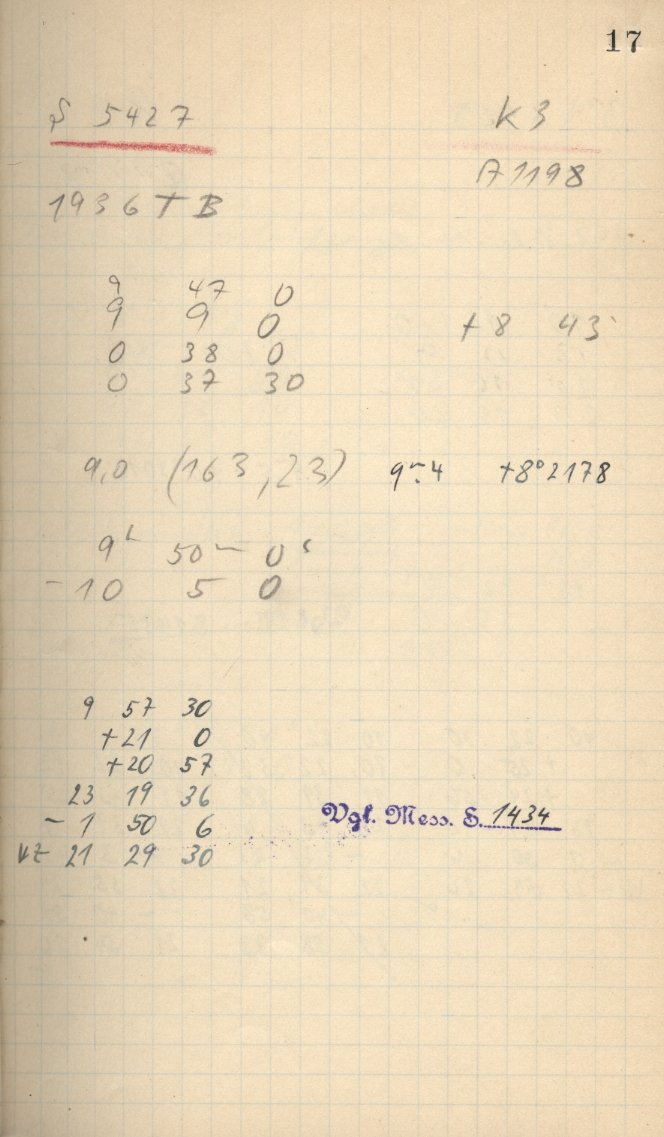 17
S 5427 K3
A 1198
1936 TB
9 47 0
9 9 0 +8 43'
0 38 0
0 37 30
9,0 (163,23) 9m.4 +8°2178
9h 50m 0s
-10 5 0
9 57 30
+21 0
+20 57
23 19 36
- 1 50 6
21 29 30
Vgl. Mess. S. 1434